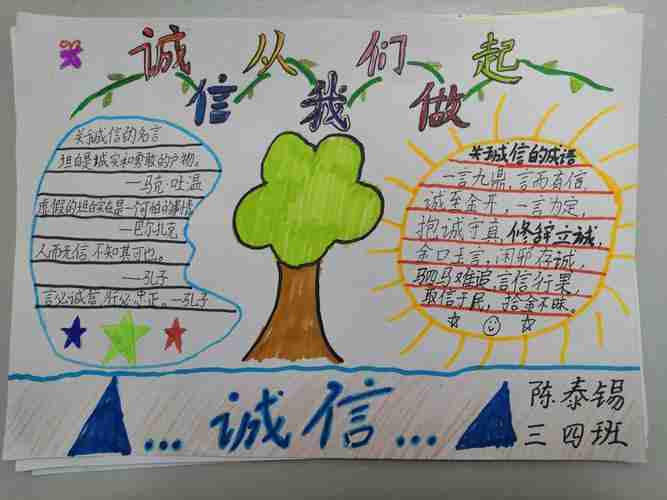 诚信从我们做起
关于诚信的名言
坦白是诚实和勇敢的产物。
——马克·吐温
虚假的坦白实在是一个可怕的事情
——巴尔扎克
人而无信不知其可也。
——孔子
言必诚信,行必忠正。——孔子
关于诚信的成语
一言九鼎,言而有信,
诚至金开,一言为定,
抱诚守真,修辞立诚,
金口玉言,闲邪存诚,
驷马难追,言信行果,
取信于民,拾金不昧。
...诚信...
陈泰锡
三四班